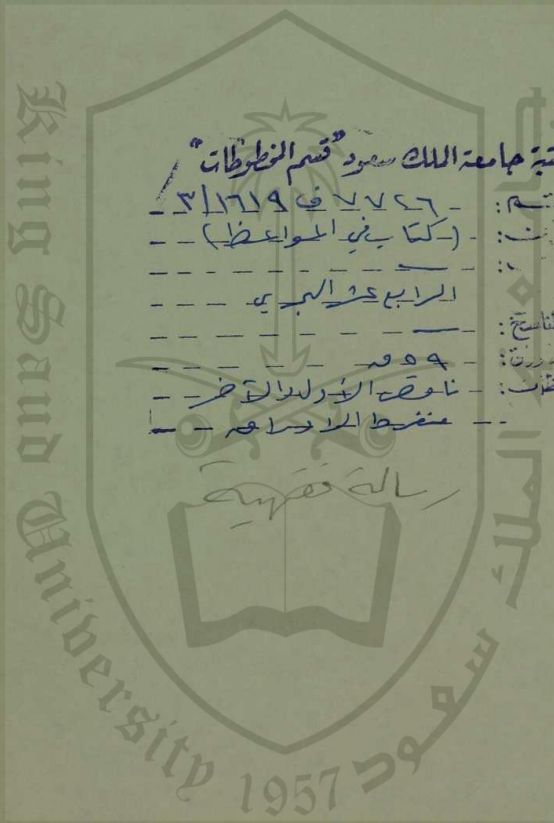 مكتبة جامعة الملك سعود "قسم المخطوطات"
٧٧٢٦ ف ١٦١٩/٣
(كتاب في المواعظ)
الرابع عشر الهجري
الناسخ:
٥٩ ور
ناقص الأول والآخر
منفرط الاوراق
رسالة فقهية
King Saud University 1957
الملك سعود